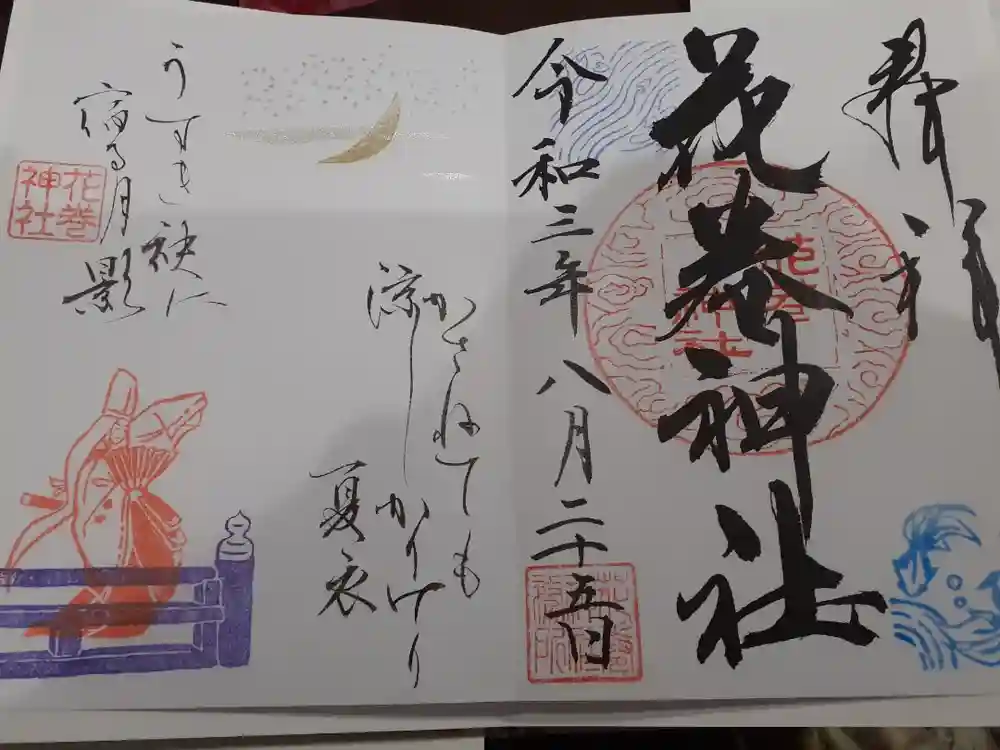 奉拝
花巻神社
花巻
神社
令和三年八月二十五日
かさねても
涼しかりけり
夏衣
うすき袂に
宿る月影
花巻
神社